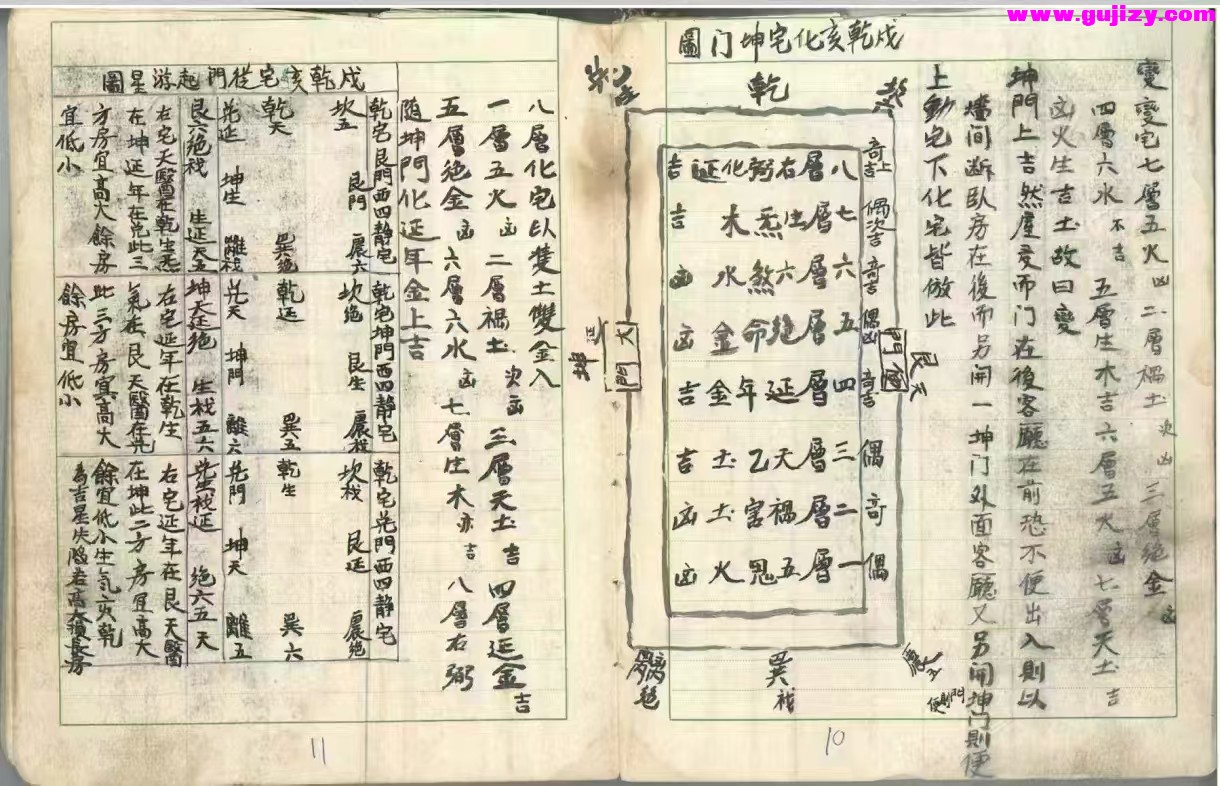 www.gujizy.com
變變宅七層五火凶 二層禍土次凶 三層絶金凶
四層六水不吉 五層生木吉 六層五火凶 七層天土吉
凶火生吉土故曰變
坤門上吉然屋受而门在後客廳在前恐不便出入則以
燼间断臥房在後而另開一坤门外面客廳又另開坤门則便
上動宅下化宅皆倣此
圖门坤宅化亥乾戌
乾
奇上吉
吉延化弼右層八
偶次吉
吉木炁生層七
奇
凶水煞六層六
偶凶
凶金命絶層五
奇吉
吉金年延層四
偶
吉土乙天層三
奇
凶土害禍層二
偶
凶火鬼五層一
門便
艮天
大門
巽
祸
便則門
10
八層化宅以雙土雙金入
一層五火凶 二層禍土次凶 三層天土吉 四層延金吉
五層絶金凶 六層六水凶 七層生木亦吉 八層右弼
随坤門化延年金上吉
圖星游起門從宅亥乾戌
乾宅艮門西四静宅
坎五 艮門 震六
乾天 巽絶
兑延 坤生 離祸
艮六絶祸 生延天五
右宅天醫在乾生炁
在坤延年在兑此三
方房宜高大餘房
宜低小
乾宅坤門西四静宅
坎絶 艮生 震祸
乾延 巽五
兑天 坤門 離六
坤天延絶 生祸五六
右宅延年在乾生
氣在艮天醫在兑
此三方房宜高大
餘房宜低小
乾宅兑門西四静宅
坎祸 艮延 震絶
乾生 巽六
兑門 坤天 離五
兑生祸延 絶六五天
右宅延年在艮天醫
在坤此二方房宜高大
餘宜低小生气火乾
為吉星失陷若高損長房
11